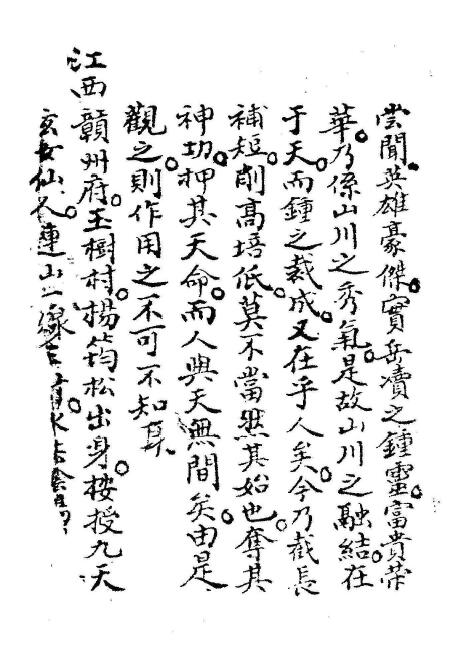 嘗聞英雄豪傑實岳瀆之鍾靈富貴榮
華乃係山川之秀氣是故山川之融結在
于天而鍾之裁成又在乎人矣今乃截長
補短削髙培低莫不當然其始也奪其
神功押其天命而人與天無間矣由是
觀之則作用之不可不知耳
江西贛州府玉樹村楊筠松出身按授九天
玄女仙人連山一線